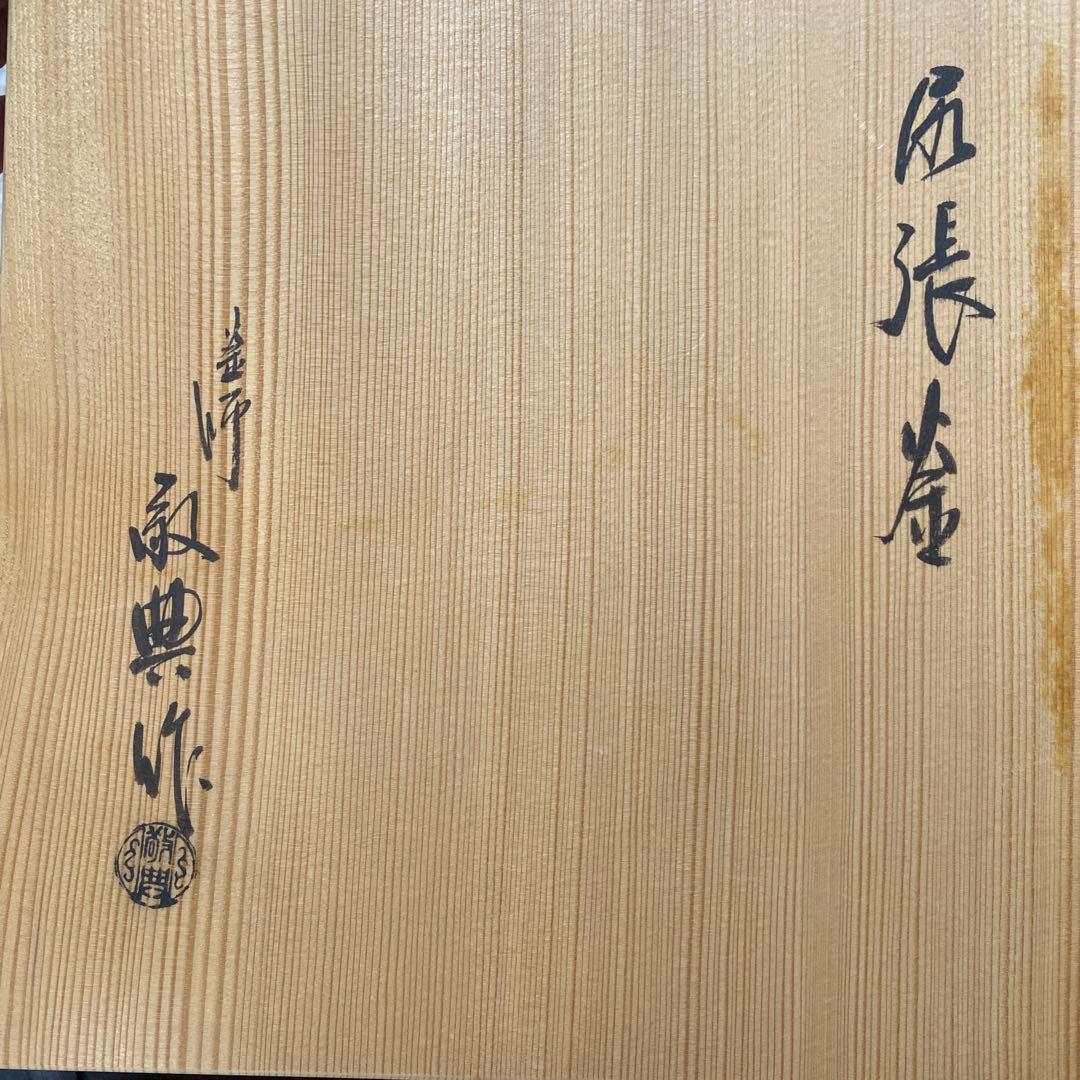 尻張釜
釜師
敬典作
敬典